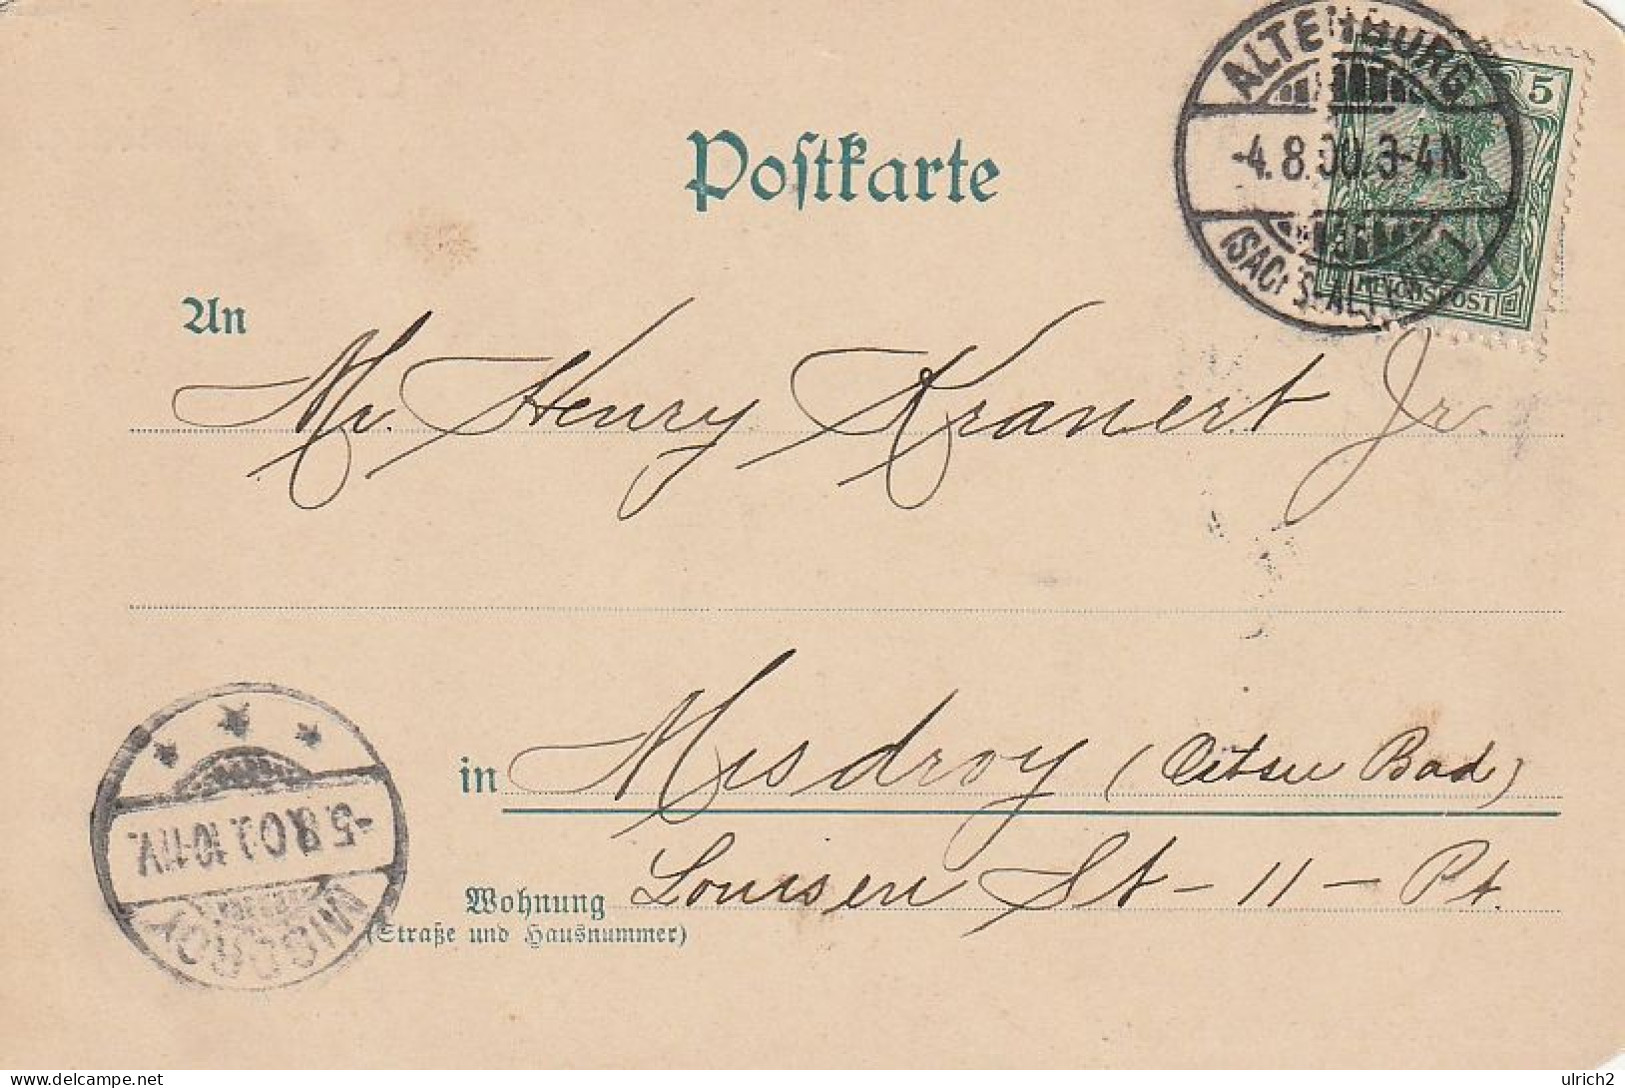 ALTENBURG
-4.8.00.3-4N.
5
REICHSPOST
Postkarte
An
Mr. Henry Kranert Jr.
in Misdroy (Ostsee Bad)
Louisen St - 11 - Pt.
Wohnung
(Straße und Hausnummer)
-5.8.00.10-11V.
MISDROY
ulrich2
delcampe.net